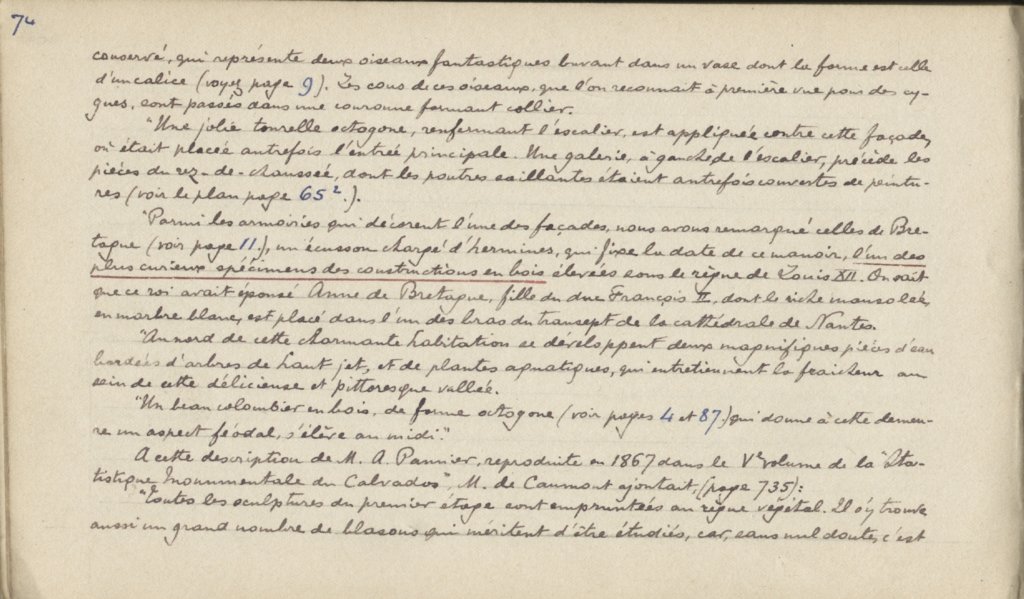 74
conservé, qui représente deux oiseaux fantastiques buvant dans un vase dont la forme est celle
d'un calice (voyez page 9). Les cous de ces oiseaux, que l'on reconnait à première vue pour des cy-
gnes, sont passés dans une couronne formant collier.
"Une jolie tourelle octogone, renfermant l'escalier, est appliquée contre cette façade,
où était placée autrefois l'entrée principale. Une galerie, à gauche de l'escalier, précède les
pièces du rez-de-chaussée, dont les poutres saillantes étaient autrefois couvertes de peintu-
res (voir le plan page 65².).
"Parmi les armoiries qui décorent l'une des façades, nous avons remarqué celles de Bre-
tagne (voir page 11.), un écusson chargé d'hermines, qui fixe la date de ce manoir, l'un des
plus curieux spécimens des constructions en bois élevées sous le règne de Louis XII. On sait
que ce roi avait épousé Anne de Bretagne, fille du duc François II, dont le riche mausolée,
en marbre blanc, est placé dans l'un des bras du transept de la cathédrale de Nantes.
"Au nord de cette charmante habitation se développent deux magnifiques pièces d'eau
bordées d'arbres de haut jet, et de plantes aquatiques, qui entretiennent la fraicheur au
sein de cette délicieuse et pittoresque vallée.
"Un beau colombier en bois, de forme octogone (voir pages 4 et 87.) qui donne à cette demeu-
re un aspect féodal, s'élève au midi."
A cette description de M. A. Pannier, reproduite en 1867 dans le Vᵉ volume de la "Sta-
tistique Monumentale du Calvados", M. de Caumont ajoutait, (page 735):
"Toutes les sculptures du premier étage sont empruntées au règne végétal. Il s'y trouve
aussi un grand nombre de blasons qui méritent d'être étudiés, car, sans nul doute, c'est